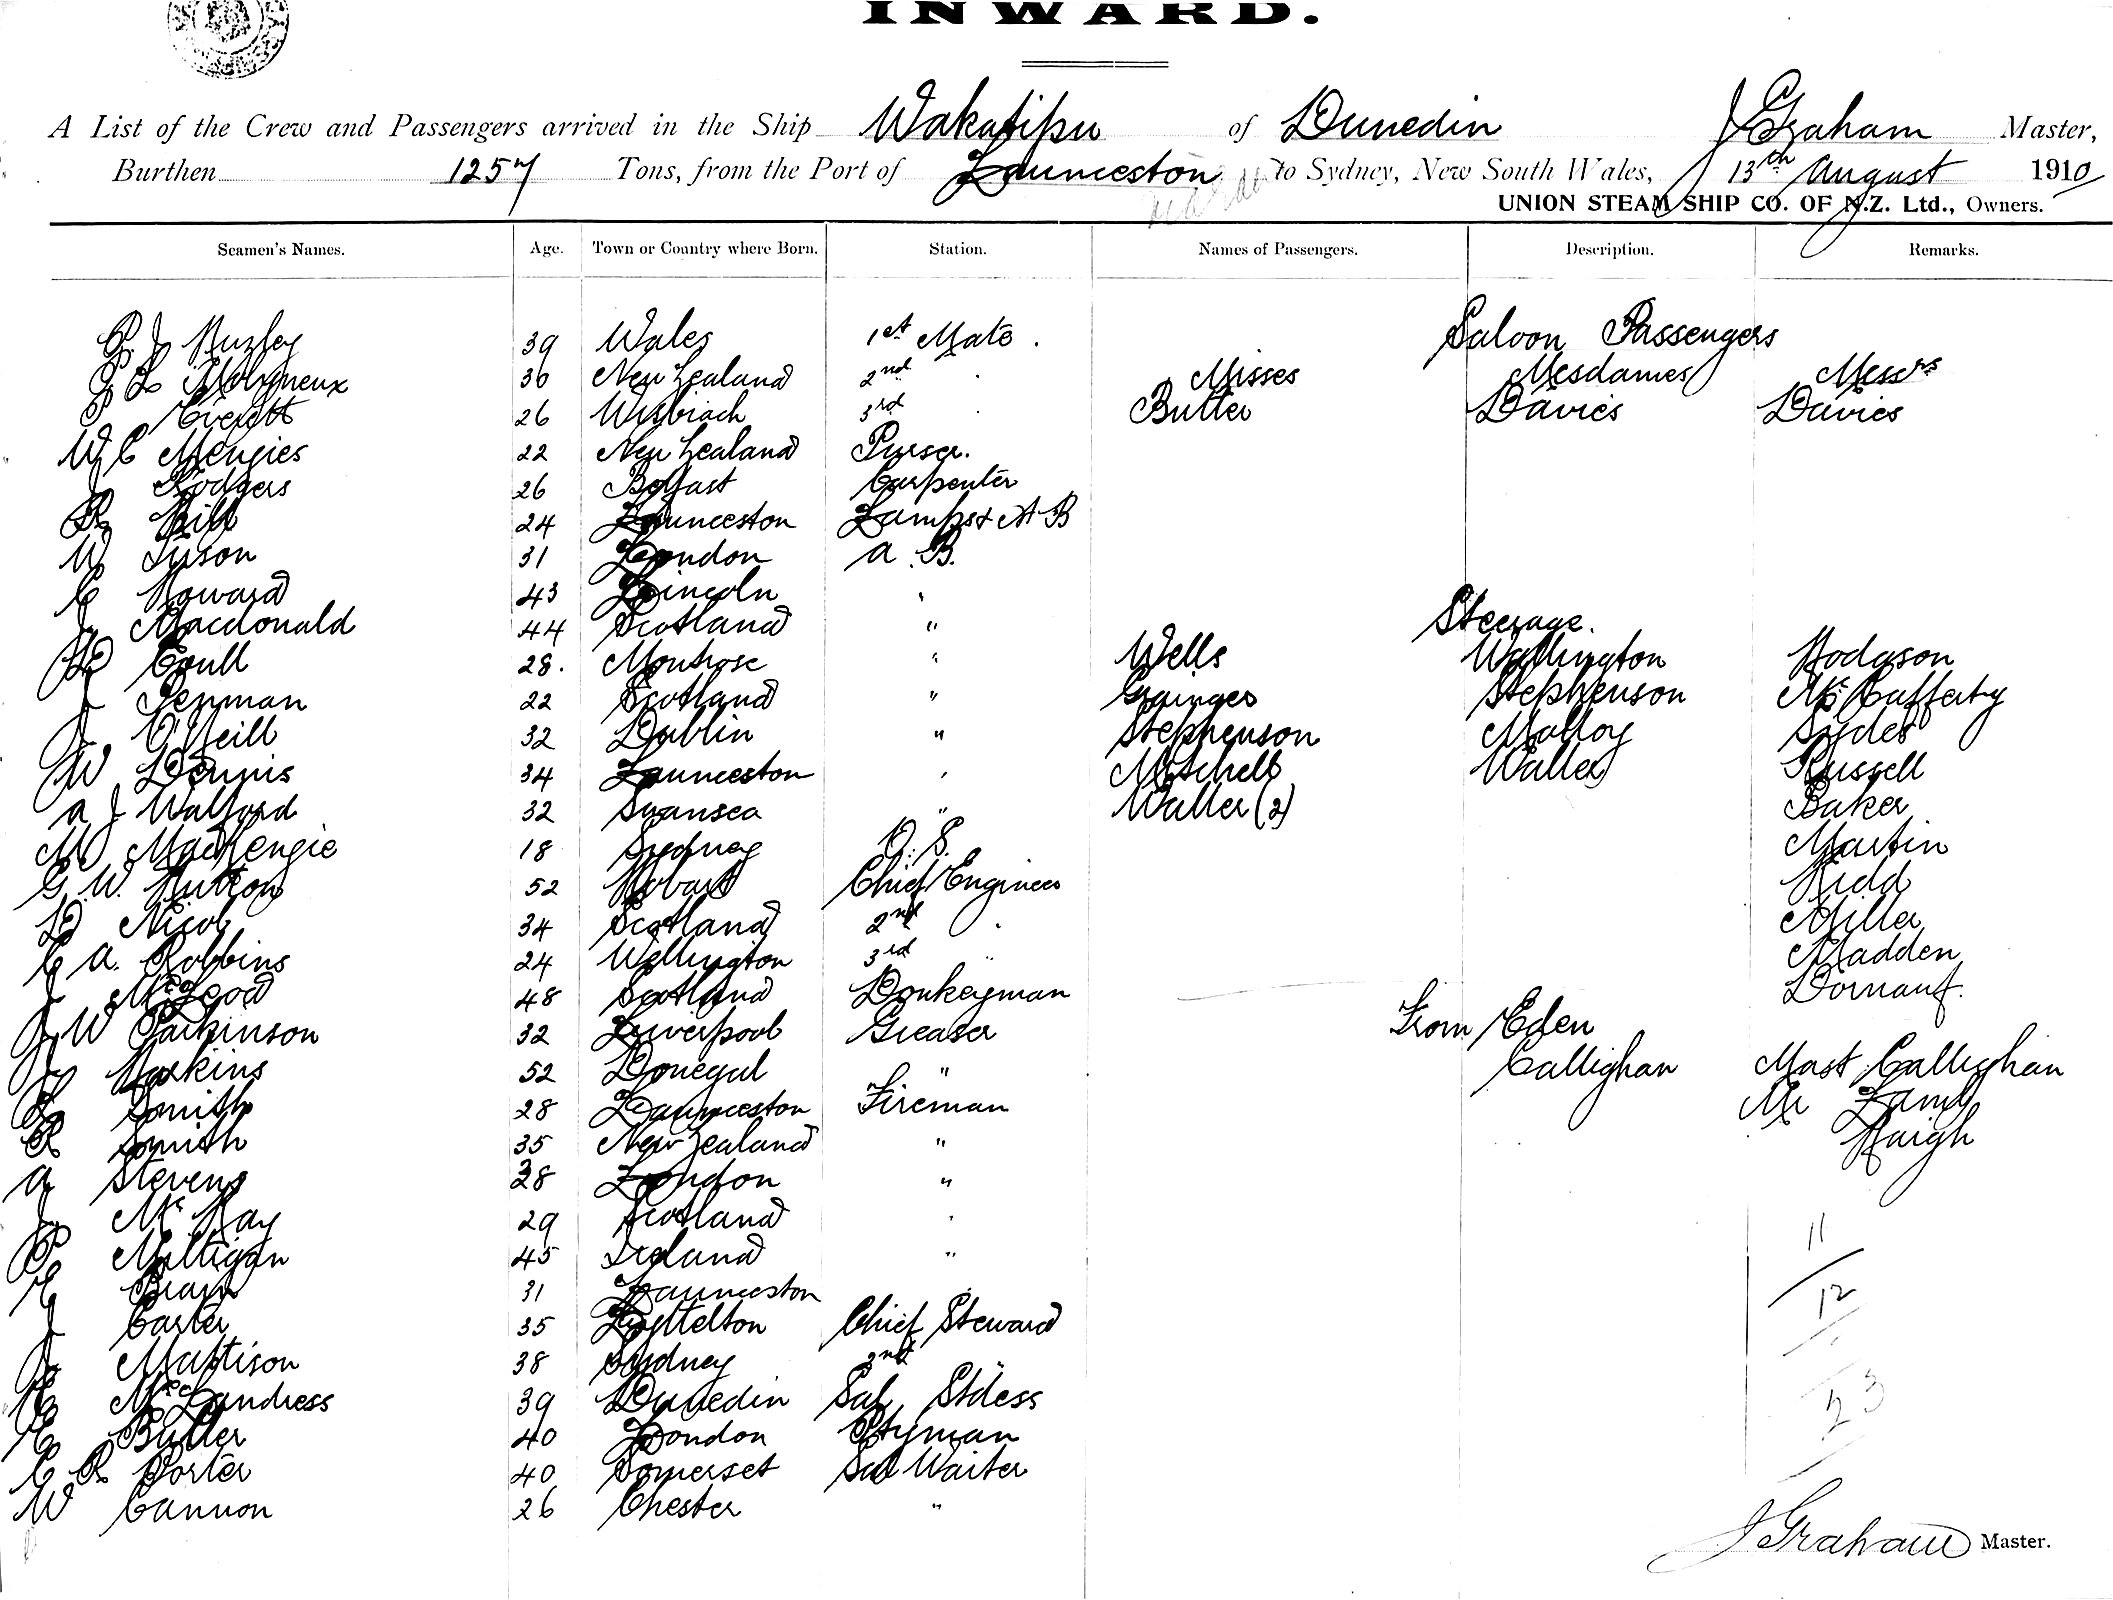 INWARD.
A List of the Crew and Passengers arrived in the Ship Wakatipu of Dunedin J Graham Master,
Burthen 1257 Tons, from the Port of Launceston to Sydney, New South Wales, 13th August 1910
UNION STEAM SHIP CO. OF N.Z. Ltd., Owners.
Seamen's Names. Age. Town or Country where Born. Station. Names of Passengers. Description. Remarks.
39 Wales 1st Mate. Saloon Passengers
Molyneux 36 New Zealand 2nd Misses Mesdames Messrs
Everett 26 Wisbiach 3rd Butler Davies Davies
W C Menzies 22 New Zealand Purser.
J Rodgers 26 Belfast Carpenter
R Hill 24 Launceston Lamps & A B
W Tuson 31 London A.B.
C Howard 43 Lincoln "
J Macdonald 44 Scotland " Steerage.
Coull 28. Montrose " Wells Wallington Hodgson
J Penman 22 Scotland " Grainger Stephenson McCafferty
J O'Neill 32 Dublin " Stephenson Malloy Sydes
W Dennis 34 Launceston " Mitchell Waller Russell
A J Walford 32 Swansea " Waller (2) Baker
M MacKenzie 18 Sydney O.S. Martin
G. W. Hutton 52 Hobart Chief Engineer Kidd
D Nicol 34 Scotland 2nd " Miller
C A. Robbins 24 Wellington 3rd " Madden
J McLeod 48 Scotland Donkeyman Dornauf.
J W Parkinson 32 Liverpool Greaser From Eden
J Haskins 52 Donegal " Callighan Mast Callighan
L Smith 28 Launceston Fireman Mr Lamb
R Smith 35 New Zealand " Haigh
A Stevens 38 London "
J McKay 29 Scotland "
P Milligan 45 Ireland " 11
31 Launceston 12
J Carter 35 Lyttelton Chief Steward
J Mattison 38 Sydney 2nd "
McLandress 39 Dunedin Sal Stdess 23
E Butler 40 London Ptyman
C R Porter 40 Somerset Sal Waiter
W Cannon 26 Chester "
J Graham Master.